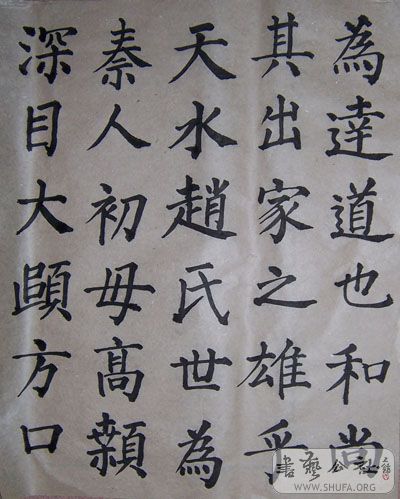 為達道也和尚
其出家之雄乎
天水趙氏世為
秦人初母高顙
深目大頤方口
書藝公社
WWW.SHUFA.ORG